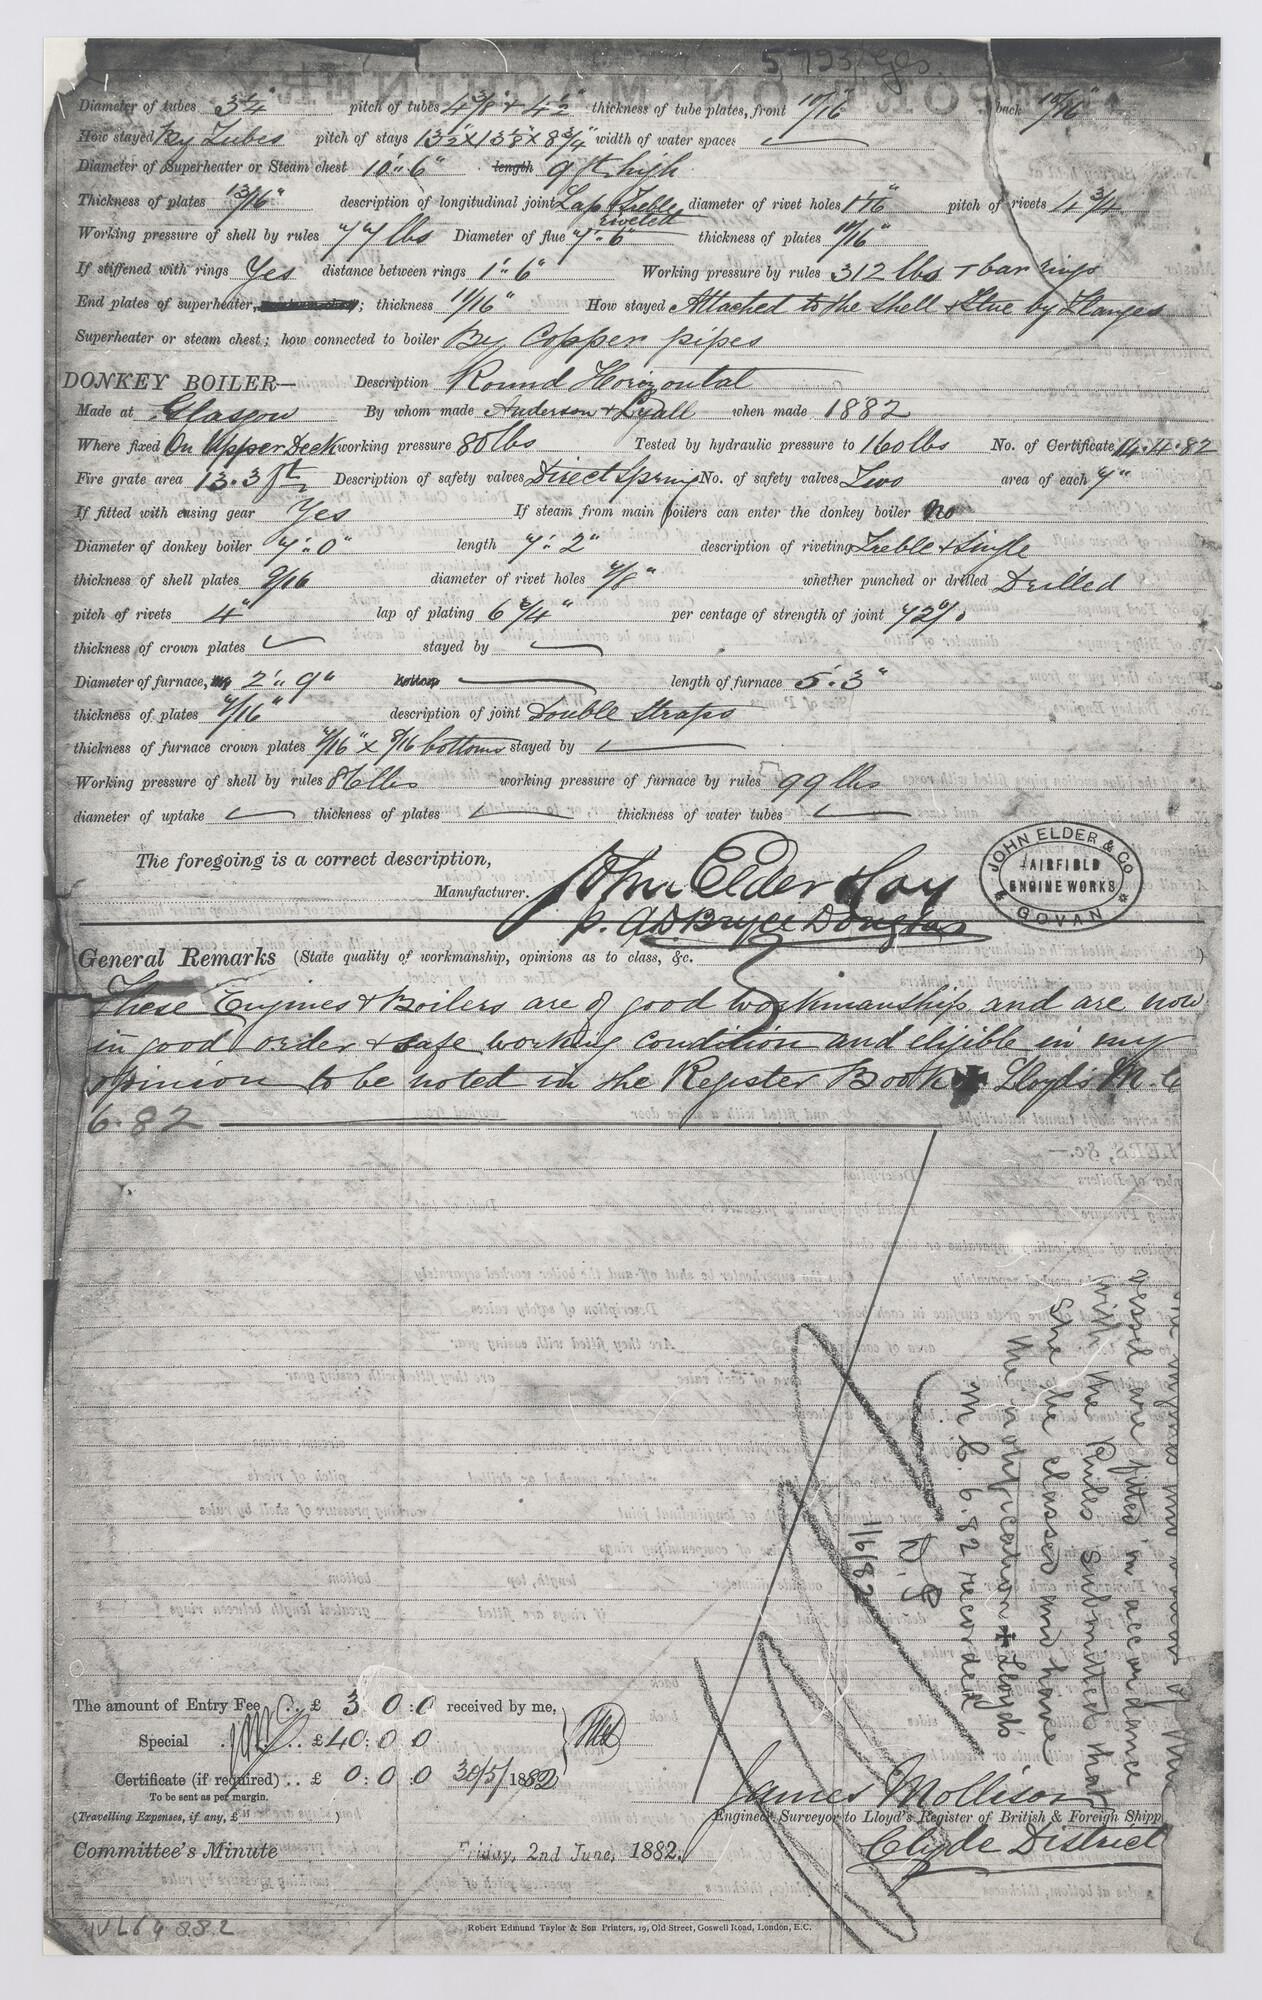 5723 Gls.
Diameter of tubes 3 1/4" pitch of tubes 4 3/8 + 4 1/2" thickness of tube plates, front 10/16" back 10/16"
How stayed By Tubes pitch of stays 13 1/2" x 13 1/8 x 8 3/4" width of water spaces
Diameter of Superheater or Steam chest 10'. 6" length 9 ft high
Thickness of plates 13/16" description of longitudinal joint Lap & treble rivetett diameter of rivet holes 1 1/16" pitch of rivets 4 3/4
Working pressure of shell by rules 77 lbs Diameter of flue 7'. 6" thickness of plates 11/16"
If stiffened with rings Yes distance between rings 1'. 6" Working pressure by rules 312 lbs T bar rings
End plates of superheater, ; thickness 11/16" How stayed Attached to the shell & flue by flanges
Superheater or steam chest; how connected to boiler By Copper pipes
DONKEY BOILER— Description Round Horizontal
Made at Glasgow By whom made Anderson & Lyall when made 1882
Where fixed On Upper Deck working pressure 80 lbs Tested by hydraulic pressure to 160 lbs No. of Certificate 14.4.82
Fire grate area 13.3 ft Description of safety valves Direct Spring No. of safety valves Two area of each 7"
If fitted with easing gear Yes If steam from main boilers can enter the donkey boiler no
Diameter of donkey boiler 7'. 0" length 7'. 2" description of riveting Treble & Single
thickness of shell plates 9/16 diameter of rivet holes 7/8" whether punched or drilled Drilled
pitch of rivets 4" lap of plating 6 3/4" per centage of strength of joint 72%
thickness of crown plates stayed by
Diameter of furnace, 2'. 9" bottom length of furnace 5'. 3"
thickness of plates 7/16" description of joint Double Straps
thickness of furnace crown plates 7/16" x 7/16 bottoms stayed by
Working pressure of shell by rules 86 lbs working pressure of furnace by rules 99 lbs
diameter of uptake thickness of plates thickness of water tubes
The foregoing is a correct description,
Manufacturer. John Elder & Coy
p. A D Bryce Douglas
JOHN ELDER & CO
FAIRFIELD
ENGINE WORKS
GOVAN
General Remarks (State quality of workmanship, opinions as to class, &c.
These Engines & Boilers are of good workmanship and are now
in good order & safe working condition and eligible in my
opinion to be noted in the Register Book ✠ Lloyd's M. C
6.82
vessel are fitted in accordance
with the Rules Submitted that
She be classed and have
the notification ✠ Lloyd's
M C. 6.82 recorded
1/6/82
The amount of Entry Fee .. £ 3 : 0 : 0 received by me,
Special .. £ 40 : 0 : 0
Certificate (if required) .. £ 0 : 0 : 0 30/5/1882
To be sent as per margin.
(Travelling Expenses, if any, £ )
James Mollison
Engineer Surveyor to Lloyd's Register of British & Foreign Shipp
Clyde District
Committee's Minute Friday, 2nd June, 1882.
Robert Edmund Taylor & Son Printers, 19, Old Street, Goswell Road, London, E.C.